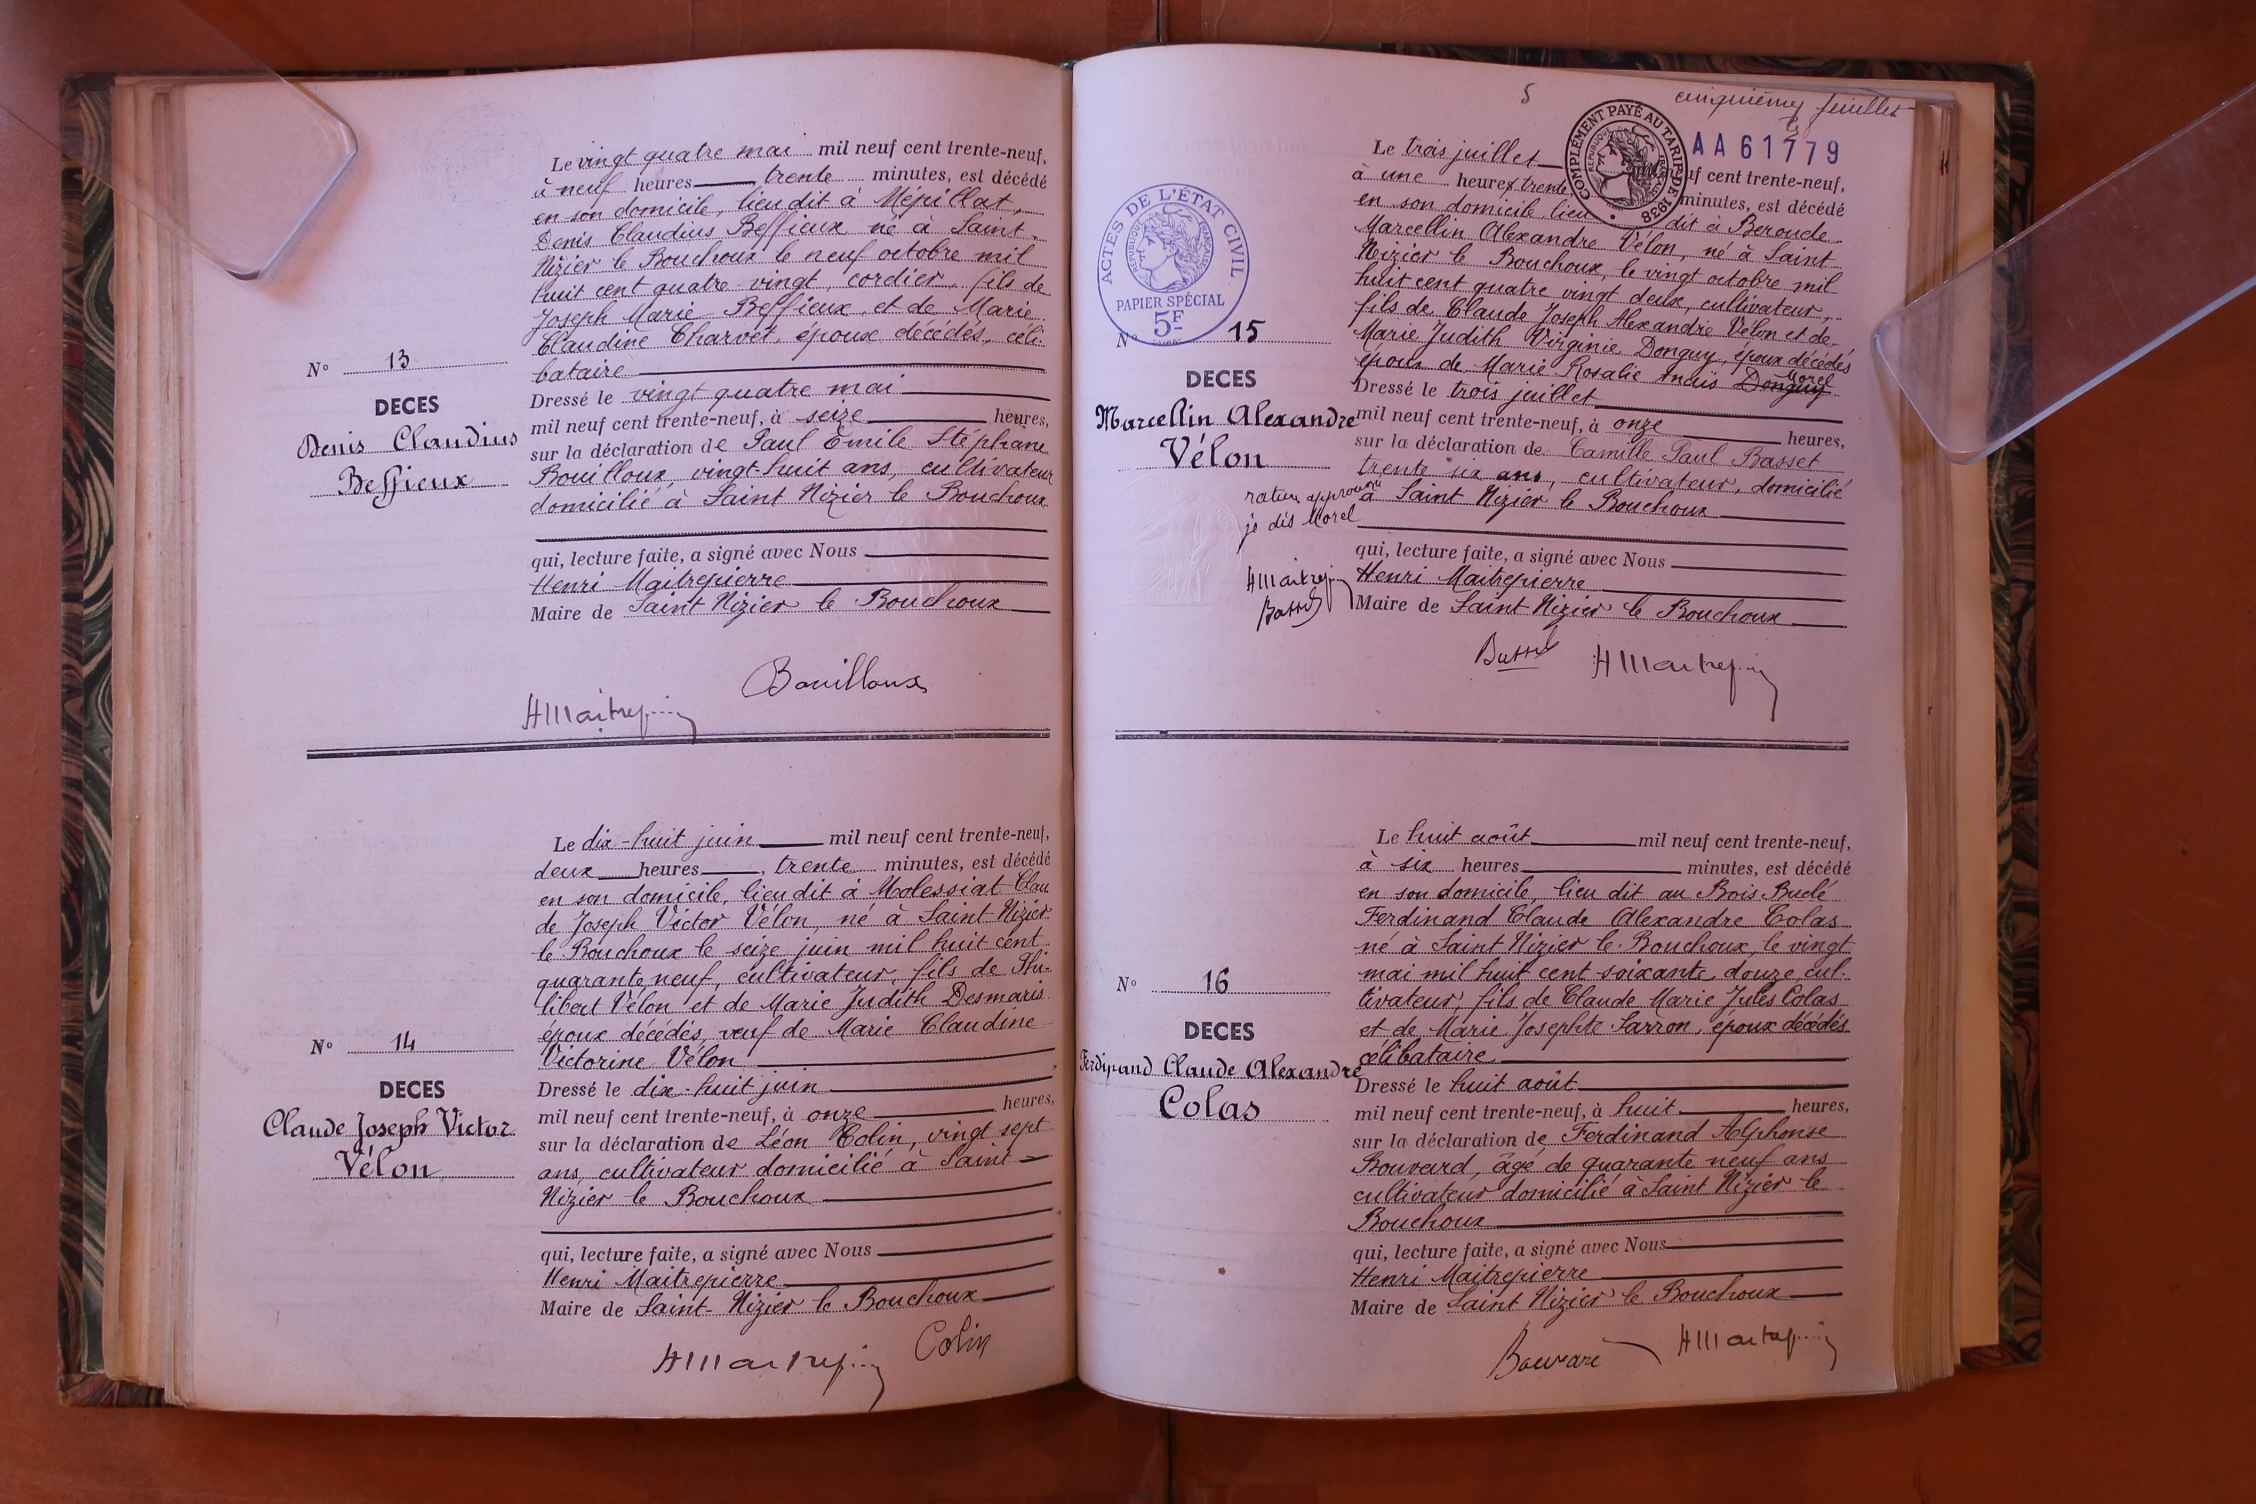 Le vingt quatre mai mil neuf cent trente-neuf,
à neuf heures trente minutes, est décédé
en son domicile, lieu dit à Mépillat,
Denis Claudius Beffieux né à Saint
Nizier le Bouchoux le neuf octobre mil
huit cent quatre vingt, cordier, fils de
Joseph Marie Beffieux, et de Marie
Claudine Charvet, époux décédés, céli-
bataire
N° 13
DECES
Denis Claudius
Beffieux
Dressé le vingt quatre mai
mil neuf cent trente-neuf, à seize heures,
sur la déclaration de Paul Emile Stéphane
Bouilloux, vingt-huit ans, cultivateur
domicilié à Saint Nizier le Bouchoux
qui, lecture faite, a signé avec Nous
Henri Maitrepierre
Maire de Saint Nizier le Bouchoux
Bouilloux
HMaitrepierre
Le dix-huit juin mil neuf cent trente-neuf,
deux heures, trente minutes, est décédé
en son domicile, lieu dit à Molessiat Clau
de Joseph Victor Vélon, né à Saint Nizier
le Bouchoux le seize juin mil huit cent
quarante neuf, cultivateur, fils de Phi-
libert Vélon et de Marie Judith Desmaris
époux décédés, veuf de Marie Claudine
Victorine Vélon
N° 14
DECES
Claude Joseph Victor
Vélon
Dressé le dix-huit juin
mil neuf cent trente-neuf, à onze heures,
sur la déclaration de Léon Colin, vingt sept
ans, cultivateur domicilié à Saint
Nizier le Bouchoux
qui, lecture faite, a signé avec Nous
Henri Maitrepierre
Maire de Saint-Nizier le Bouchoux
HMaitrepierre Colin
5 cinquième feuillet
COMPLÉMENT PAYÉ AU TARIF DE 1938
RÉPUBLIQUE FRANÇAISE
AA61779
ACTES DE L'ÉTAT CIVIL
RÉPUBLIQUE FRANÇAISE
PAPIER SPÉCIAL
5F
Le trois juillet uf cent trente-neuf,
à une heure trente minutes, est décédé
en son domicile lieu dit à Beroude
Marcellin Alexandre Vélon, né à Saint
Nizier le Bouchoux, le vingt octobre mil
huit cent quatre vingt deux, cultivateur,
fils de Claude Joseph Alexandre Vélon et de
Marie Judith Virginie Donguy, époux décédés
époux de Marie Rosalie Anaïs Donguy Morel
N° 15
DECES
Marcellin Alexandre
Vélon
Dressé le trois juillet
mil neuf cent trente-neuf, à onze heures,
sur la déclaration de Camille Paul Basset
trente six ans, cultivateur, domicilié
à Saint Nizier le Bouchoux
rature approuvée
je dis Morel
HMaitrepierre
Basset
qui, lecture faite, a signé avec Nous
Henri Maitrepierre
Maire de Saint Nizier le Bouchoux
Basset HMaitrepierre
Le huit août mil neuf cent trente-neuf,
à six heures minutes, est décédé
en son domicile, lieu dit au Bois Budé
Ferdinand Claude Alexandre Colas
né à Saint Nizier le Bouchoux, le vingt
mai mil huit cent soixante douze, cul-
tivateur, fils de Claude Marie Jules Colas
et de Marie Josephte Sarron, époux décédés
célibataire
N° 16
DECES
Ferdinand Claude Alexandre
Colas
Dressé le huit août
mil neuf cent trente-neuf, à huit heures,
sur la déclaration de Ferdinand Alphonse
Bouvard, âgé de quarante neuf ans
cultivateur domicilié à Saint Nizier le
Bouchoux
qui, lecture faite, a signé avec Nous
Henri Maitrepierre
Maire de Saint Nizier le Bouchoux
Bouvard HMaitrepierre